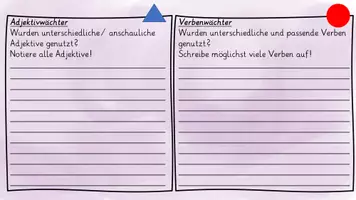 Adjektivwächter
Wurden unterschiedliche/ anschauliche
Adjektive genutzt?
Notiere alle Adjektive!
Verbenwächter
Wurden unterschiedliche und passende Verben
genutzt?
Schreibe möglichst viele Verben auf!